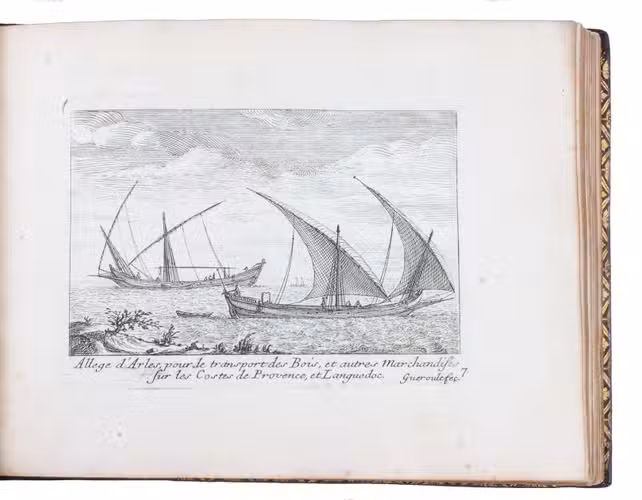 Allege d'Arles, pour de transport des Bois, et autres Marchandises
sur les Costes de Provence, et Languedoc.
Gueroult fec.
7